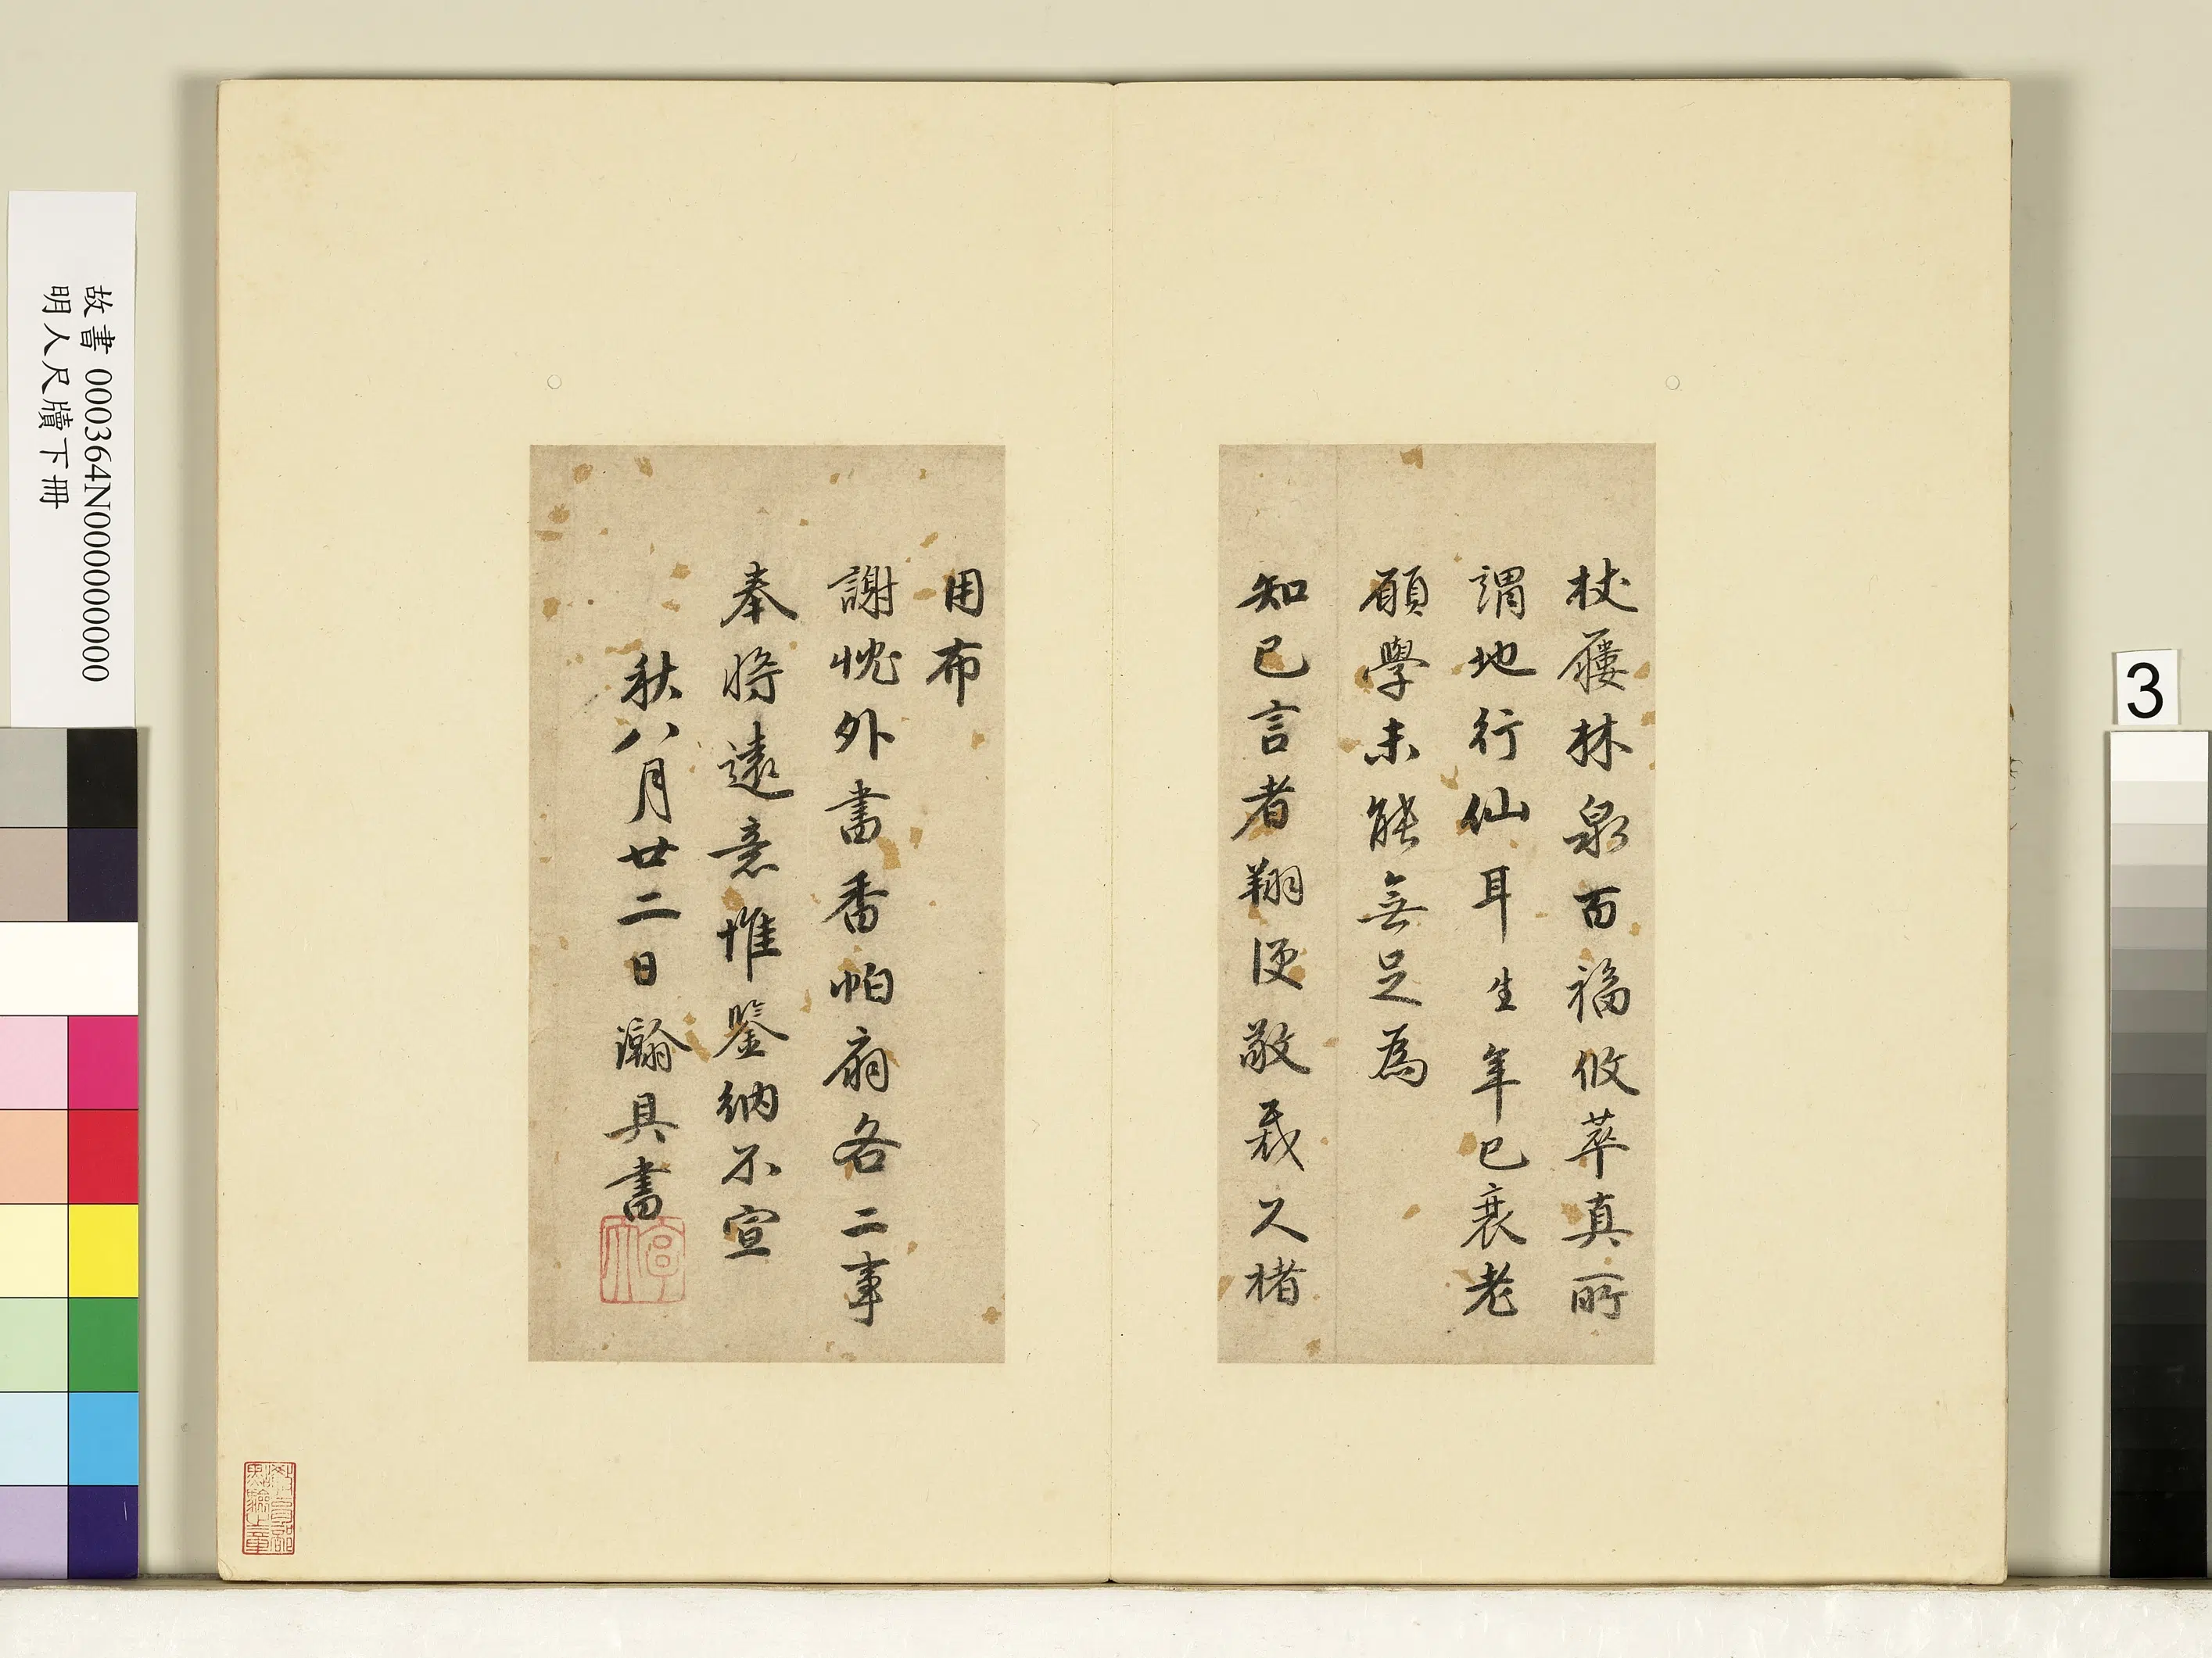 杖屨林泉百福攸萃真所
謂地行仙耳生年已衰老
願學未能無足為
知已言者翔便敬裁久楮
用布
謝愧外書香帕扇各二事
奉將遠意惟鑒納不宣
秋八月廿二日瀚具書
故書 000364N000000000
明人尺牘下冊
3